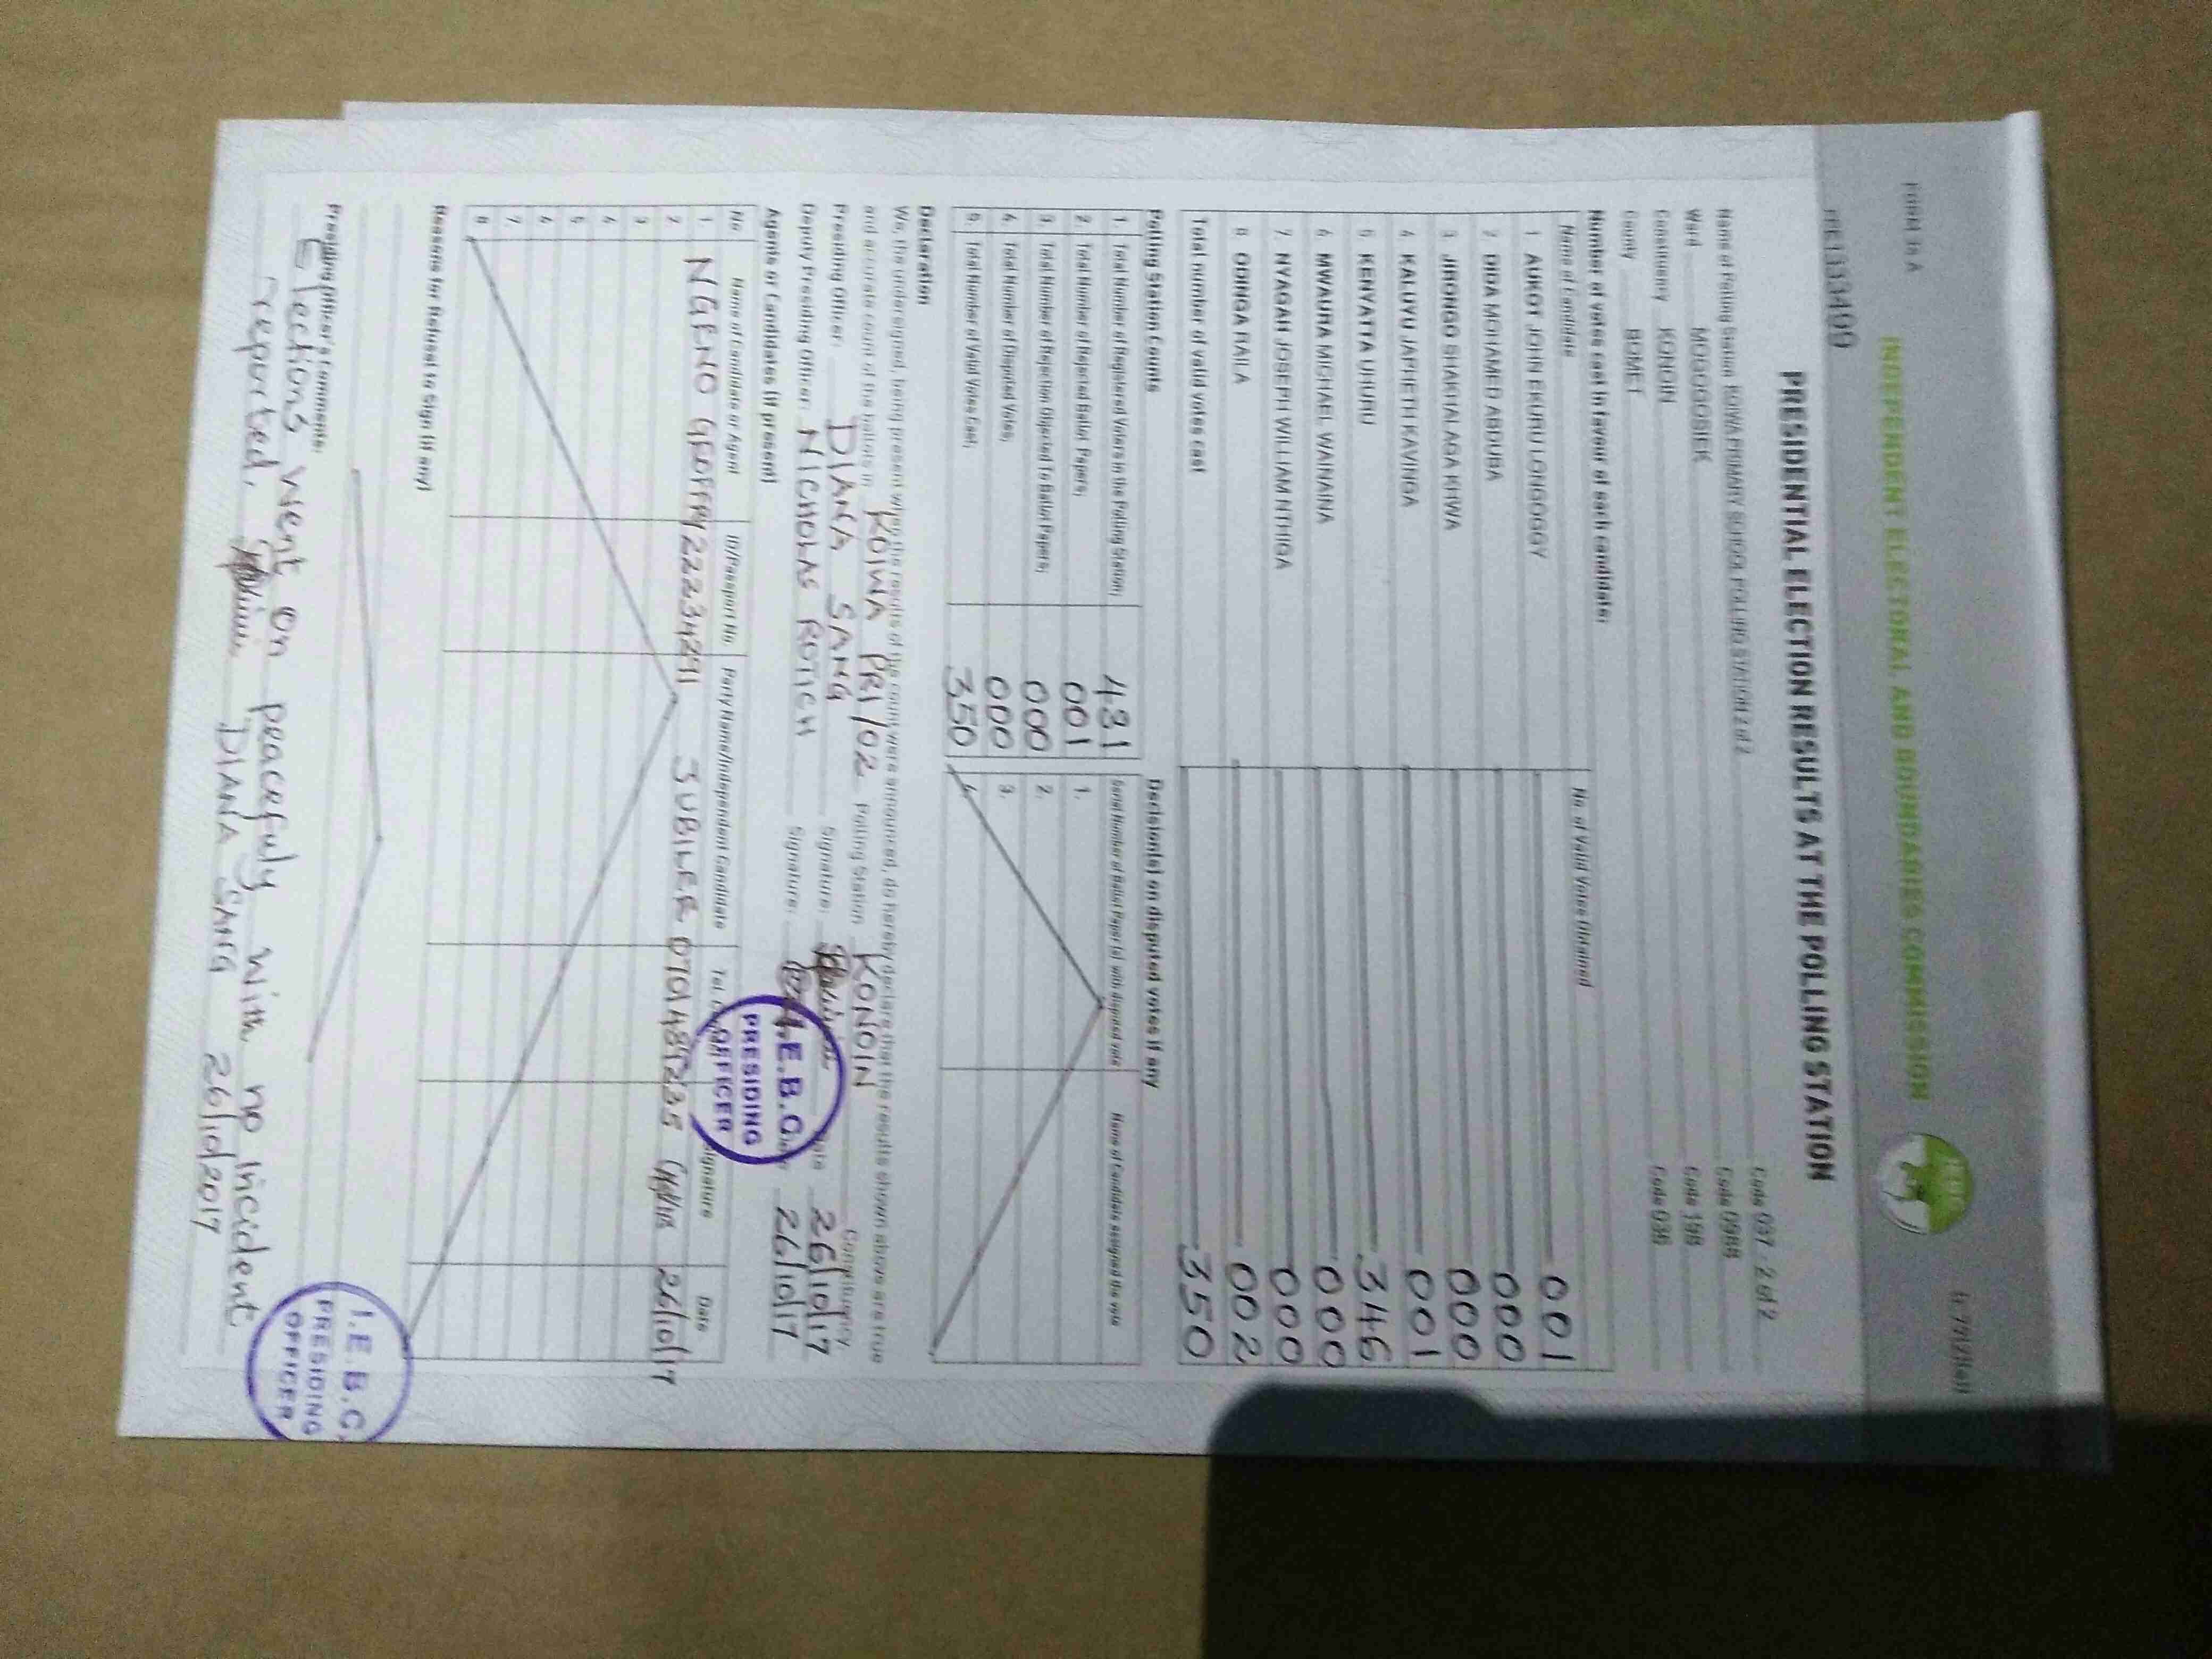 FORM 34 A
INDEPENDENT ELECTORAL AND BOUNDARIES COMMISSION
PRESIDENTIAL ELECTION RESULTS AT THE POLLING STATION
Name of Polling Station KOIWA PRIMARY SCHOOL POLLING STATION 2 of 2 Code 037 - 2 of 2
Ward MOGOGOSIEK Code 0988
Constituency KONOIN Code 198
County BOMET Code 036
Number of votes cast in favour of each candidate:
Name of Candidate No. of Valid Votes Obtained
1 AUKOT JOHN EKURU LONGOGGY 001
2 DIDA MOHAMED ABDUBA 000
3 JIRONGO SHAKHALAGA KHWA 000
4 KALUYU JAPHETH KAVINGA 001
5 KENYATTA UHURU 346
6 MWAURA MICHAEL WAINAINA 000
7. NYAGAH JOSEPH WILLIAM NTHIGA 000
8 ODINGA RAILA 002
Total number of valid votes cast 350
Polling Station Counts
1. Total Number of Registered Voters in the Polling Station; 431
2. Total Number of Rejected Ballot Papers; 001
3. Total Number of Rejection Objected To Ballot Papers; 000
4. Total Number of Disputed Votes; 000
5. Total Number of Valid Votes Cast; 350
Decision(s) on disputed votes if any
Serial Number of Ballot Paper(s) with disputed vote Name of Candidate assigned the vote
1.
2.
3.
4.
Declaration
We, the undersigned, being present when the results of the count were announced, do hereby declare that the results shown above are true
and accurate count of the ballots in KOIWA PRI/02 Polling Station KONOIN Constituency
Presiding Officer: DIANA SANG Signature: Date 26/10/17
Deputy Presiding Officer: NICHOLAS ROTICH Signature: 26/10/17
I.E.B.C.
PRESIDING
OFFICER
Agents or Candidates (if present)
No Name of Candidate or Agent ID/Passport No. Party Name/Independent Candidate Tel. Signature Date
1 NGENO GEOFFRY 22234291 JUBILEE 26/10/17
2
3
4
5
6
7
8
Reasons for Refusal to Sign (if any)
Presiding Officer's Comments:
Elections went on peacefuly with no incident
reported. DIANA SANG 26/10/2017
I.E.B.C.
PRESIDING
OFFICER